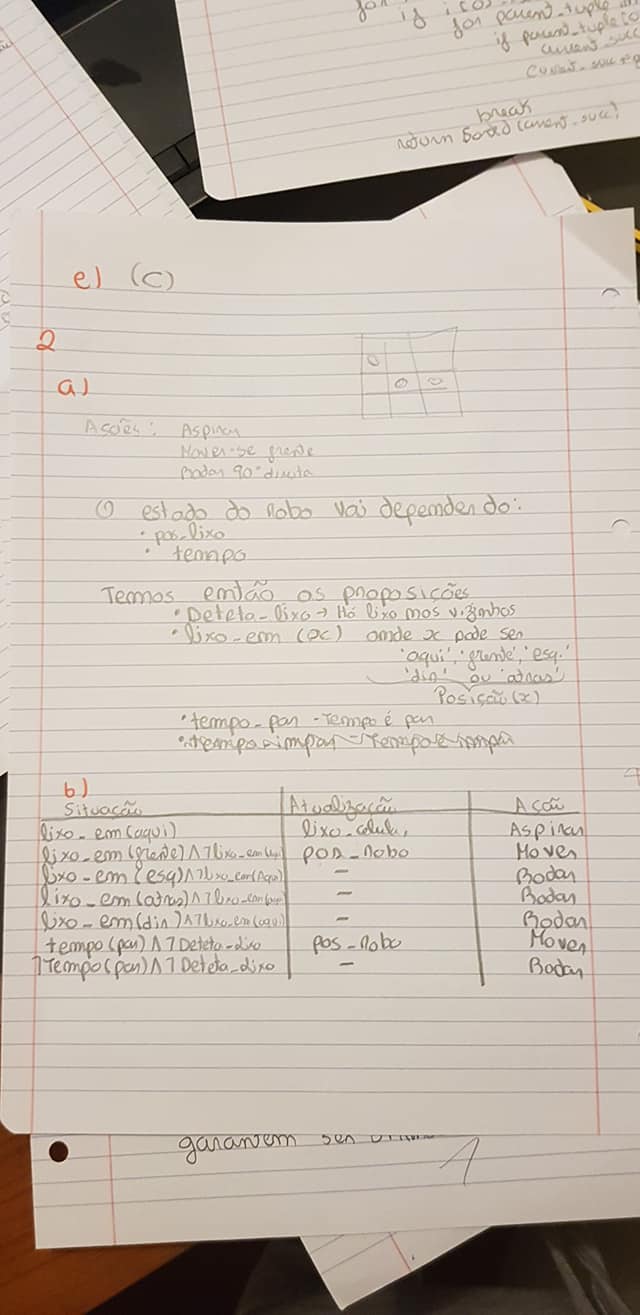 for parent_tuple in
if parent_tuple[0]
current_succ
break
return board(current_succ)
e) (C)
2
a)
Ações: Aspirar
Mover-se frente
Rodar 90° direita
O estado do robo vai depender do:
• pos_lixo
• tempo
Temos então as proposições
• Deteta-lixo → Há lixo nos vizinhos
• lixo-em (x) onde x pode ser
'aqui', 'frente', 'esq.'
'dir' ou 'atras'
Posição(x)
• tempo-par - Tempo é par
• tempo-impar - Tempo é impar
b)
Situação Atualização Ação
lixo-em(aqui) lixo_celula, Aspirar
lixo-em(frente)∧¬lixo_em(aqui) pos_robo Mover
lixo-em(esq)∧¬lixo_em(Aqui) - Rodar
lixo-em(atras)∧¬lixo_em(aqui) - Rodar
lixo-em(dir)∧¬lixo_em(aqui) - Rodar
tempo(par)∧¬Deteta-lixo pos_robo Mover
¬Tempo(par)∧¬Deteta_lixo - Rodar
garantem ser
1